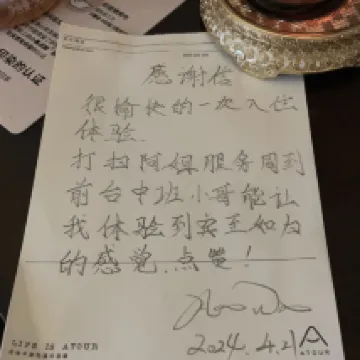 的认证
感谢信
很愉快的一次入住
体验.
打扫阿姐服务周到
前台中班小哥能让
我体验到宾至如归
的感觉.点赞!
2024.4.21
LIFE IS ATOUR
ATOUR